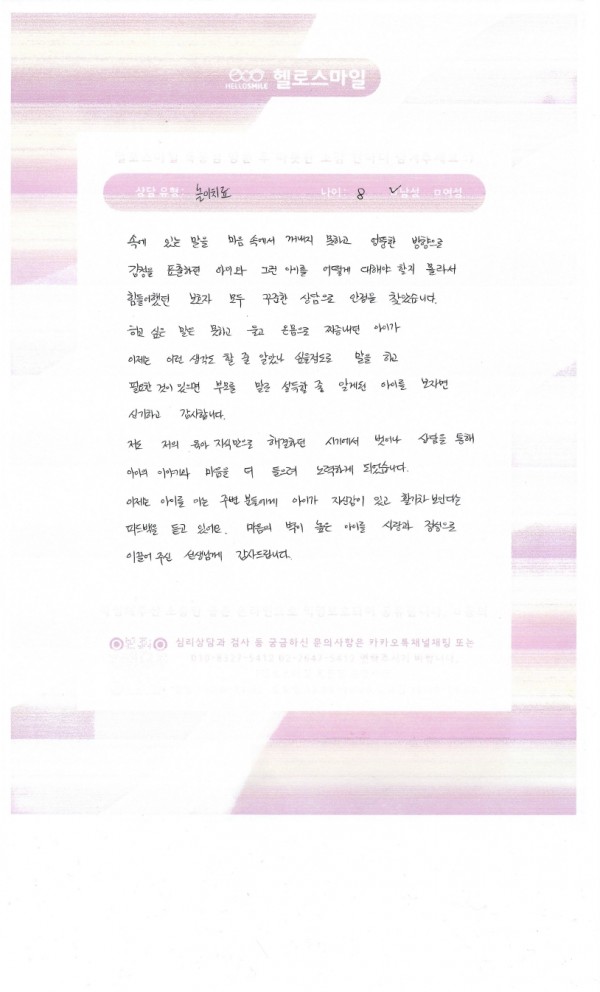 HELLOSMILE 헬로스마일
상담 유형: 놀이치료 나이: 8 ✓남성 □여성
속에 있는 말을 마음 속에서 꺼내지 못하고 엉뚱한 방향으로
감정을 표출하던 아이와 그런 아이를 어떻게 대해야 할지 몰라서
힘들어했던 보호자 모두 꾸준한 상담으로 안정을 찾았습니다.
하고 싶은 말도 못하고 울고 온몸으로 짜증내던 아이가
이제는 이런 생각도 할 줄 알았나 싶을정도로 말을 하고
필요한 것이 있으면 부모를 말로 설득할 줄 알게된 아이를 보자면
신기하고 감사합니다.
저도 저의 육아 지식만으로 해결하던 시기에서 벗어나 상담을 통해
아이의 이야기와 마음을 더 들으려 노력하게 되었습니다.
이제는 아이를 아는 주변 분들에게 아이가 자신감이 있고 활기차 보인다는
피드백을 듣고 있어요. 마음의 벽이 높은 아이를 사랑과 정성으로
이끌어 주신 선생님께 감사드립니다.
심리상담과 검사 등 궁금하신 문의사항은 카카오톡채널채팅 또는